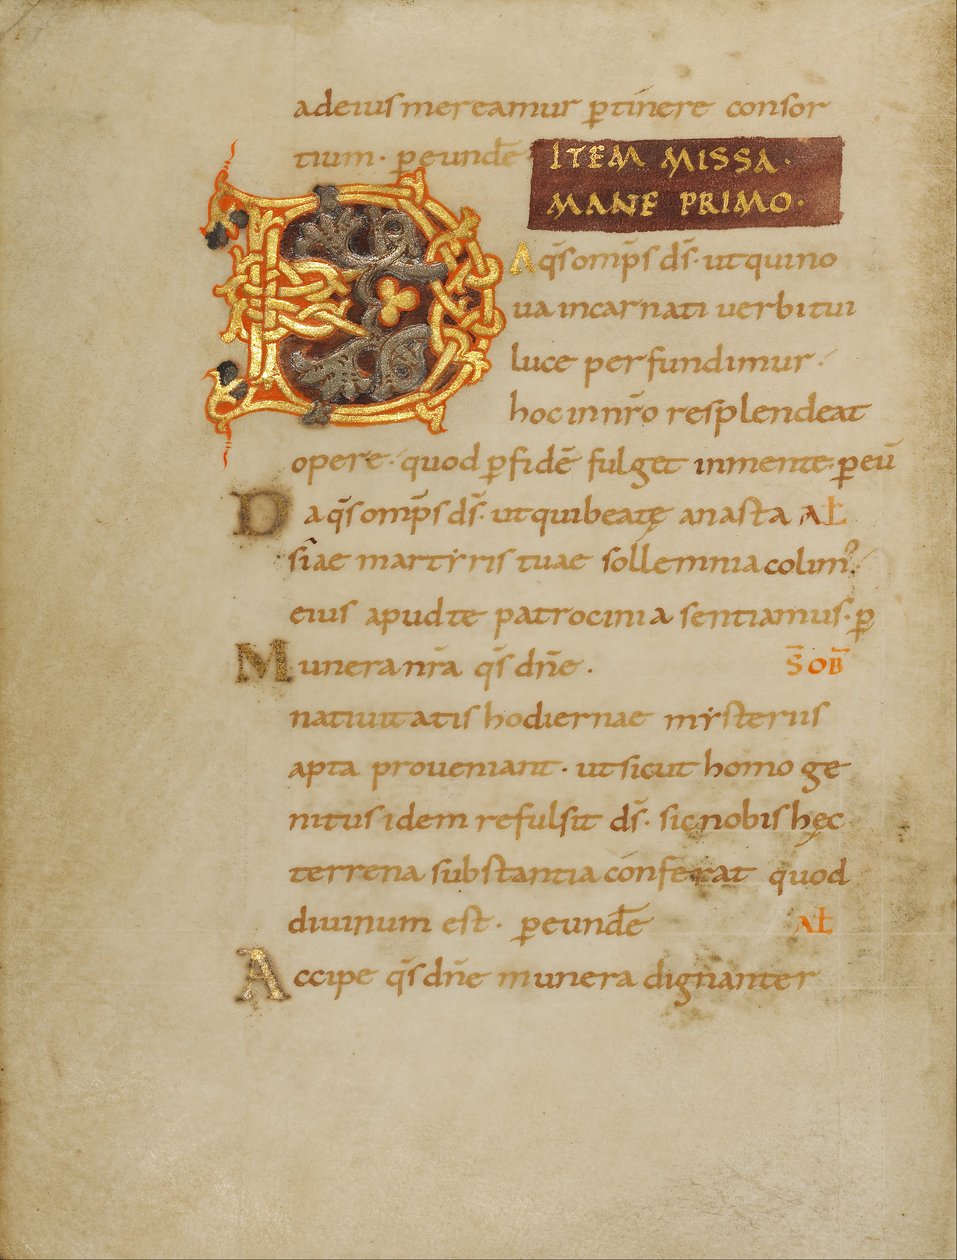 adeius mereamur ꝑtinere consor
tium· ꝑeundē· ITEM MISSA·
MANE PRIMO·
DA qs̄ omp̄s ds̄· ut qui no
ua incarnati uerbi tui
luce perfundimur·
hoc in nr̄o resplendeat
opere· quod ꝑ fidē fulget in mente· ꝑ eū
Da qs̄ omp̄s ds̄· ut qui beatę anasta AL̄
siae martyris tuae sollemnia colim᾽·
eius apud te patrocinia sentiamus· ꝑ
Munera nr̄a qs̄ dn̄e· S̄ OB̄
natiuitatis hodiernae mysteriis
apta proueniant· ut sicut homo ge
nitus idem refulsit ds̄· sic nobis hęc
terrena substantia conferat quod
diuinum est· ꝑeundē AL̄
Accipe qs̄ dn̄e munera dignanter